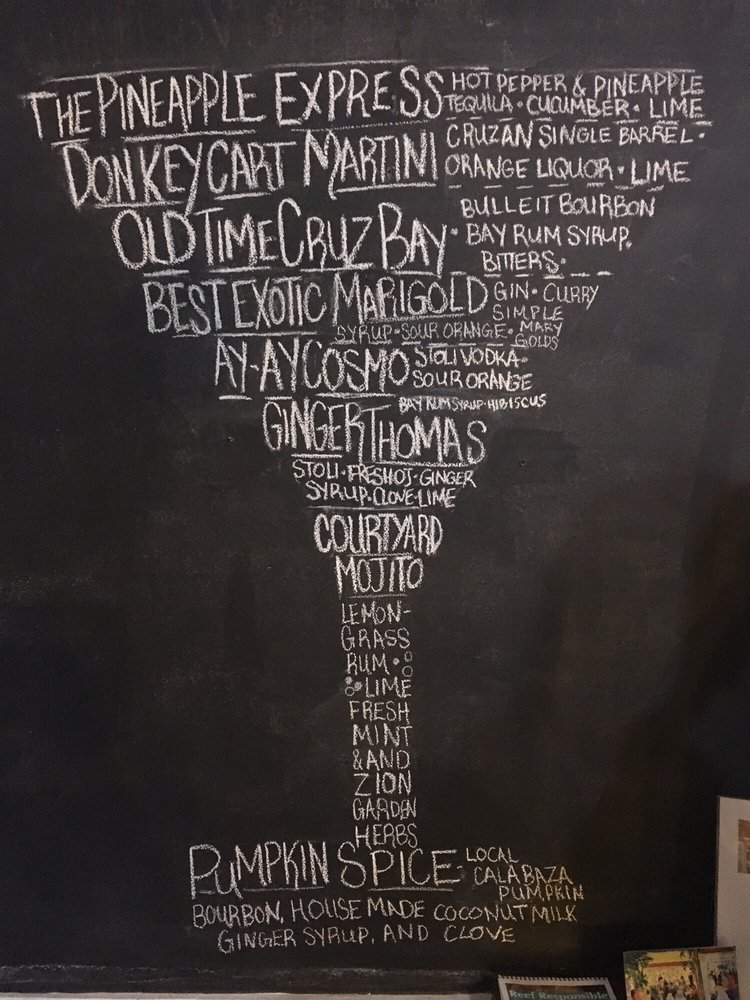 THE PINEAPPLE EXPRESS HOT PEPPER & PINEAPPLE
TEQUILA • CUCUMBER • LIME
DONKEY CART MARTINI CRUZAN SINGLE BARREL •
ORANGE LIQUOR • LIME
OLD TIME CRUZ BAY • BULLEIT BOURBON
BAY RUM SYRUP,
BITTERS •
BEST EXOTIC MARIGOLD GIN • CURRY
SIMPLE
SYRUP • SOUR ORANGE • MARY
GOLDS
AY-AY COSMO STOLI VODKA •
SOUR ORANGE
BAY RUM SYRUP • HIBISCUS
GINGER THOMAS
STOLI • FRESH OJ • GINGER
SYRUP • CLOVE • LIME
COURTYARD
MOJITO
LEMON-
GRASS
RUM •
LIME
FRESH
MINT
&AND
ZION
GARDEN
HERBS
PUMPKIN SPICE • LOCAL
CALABAZA
PUMPKIN
BOURBON, HOUSE MADE COCONUT MILK
GINGER SYRUP, AND CLOVE
Reef Responsible